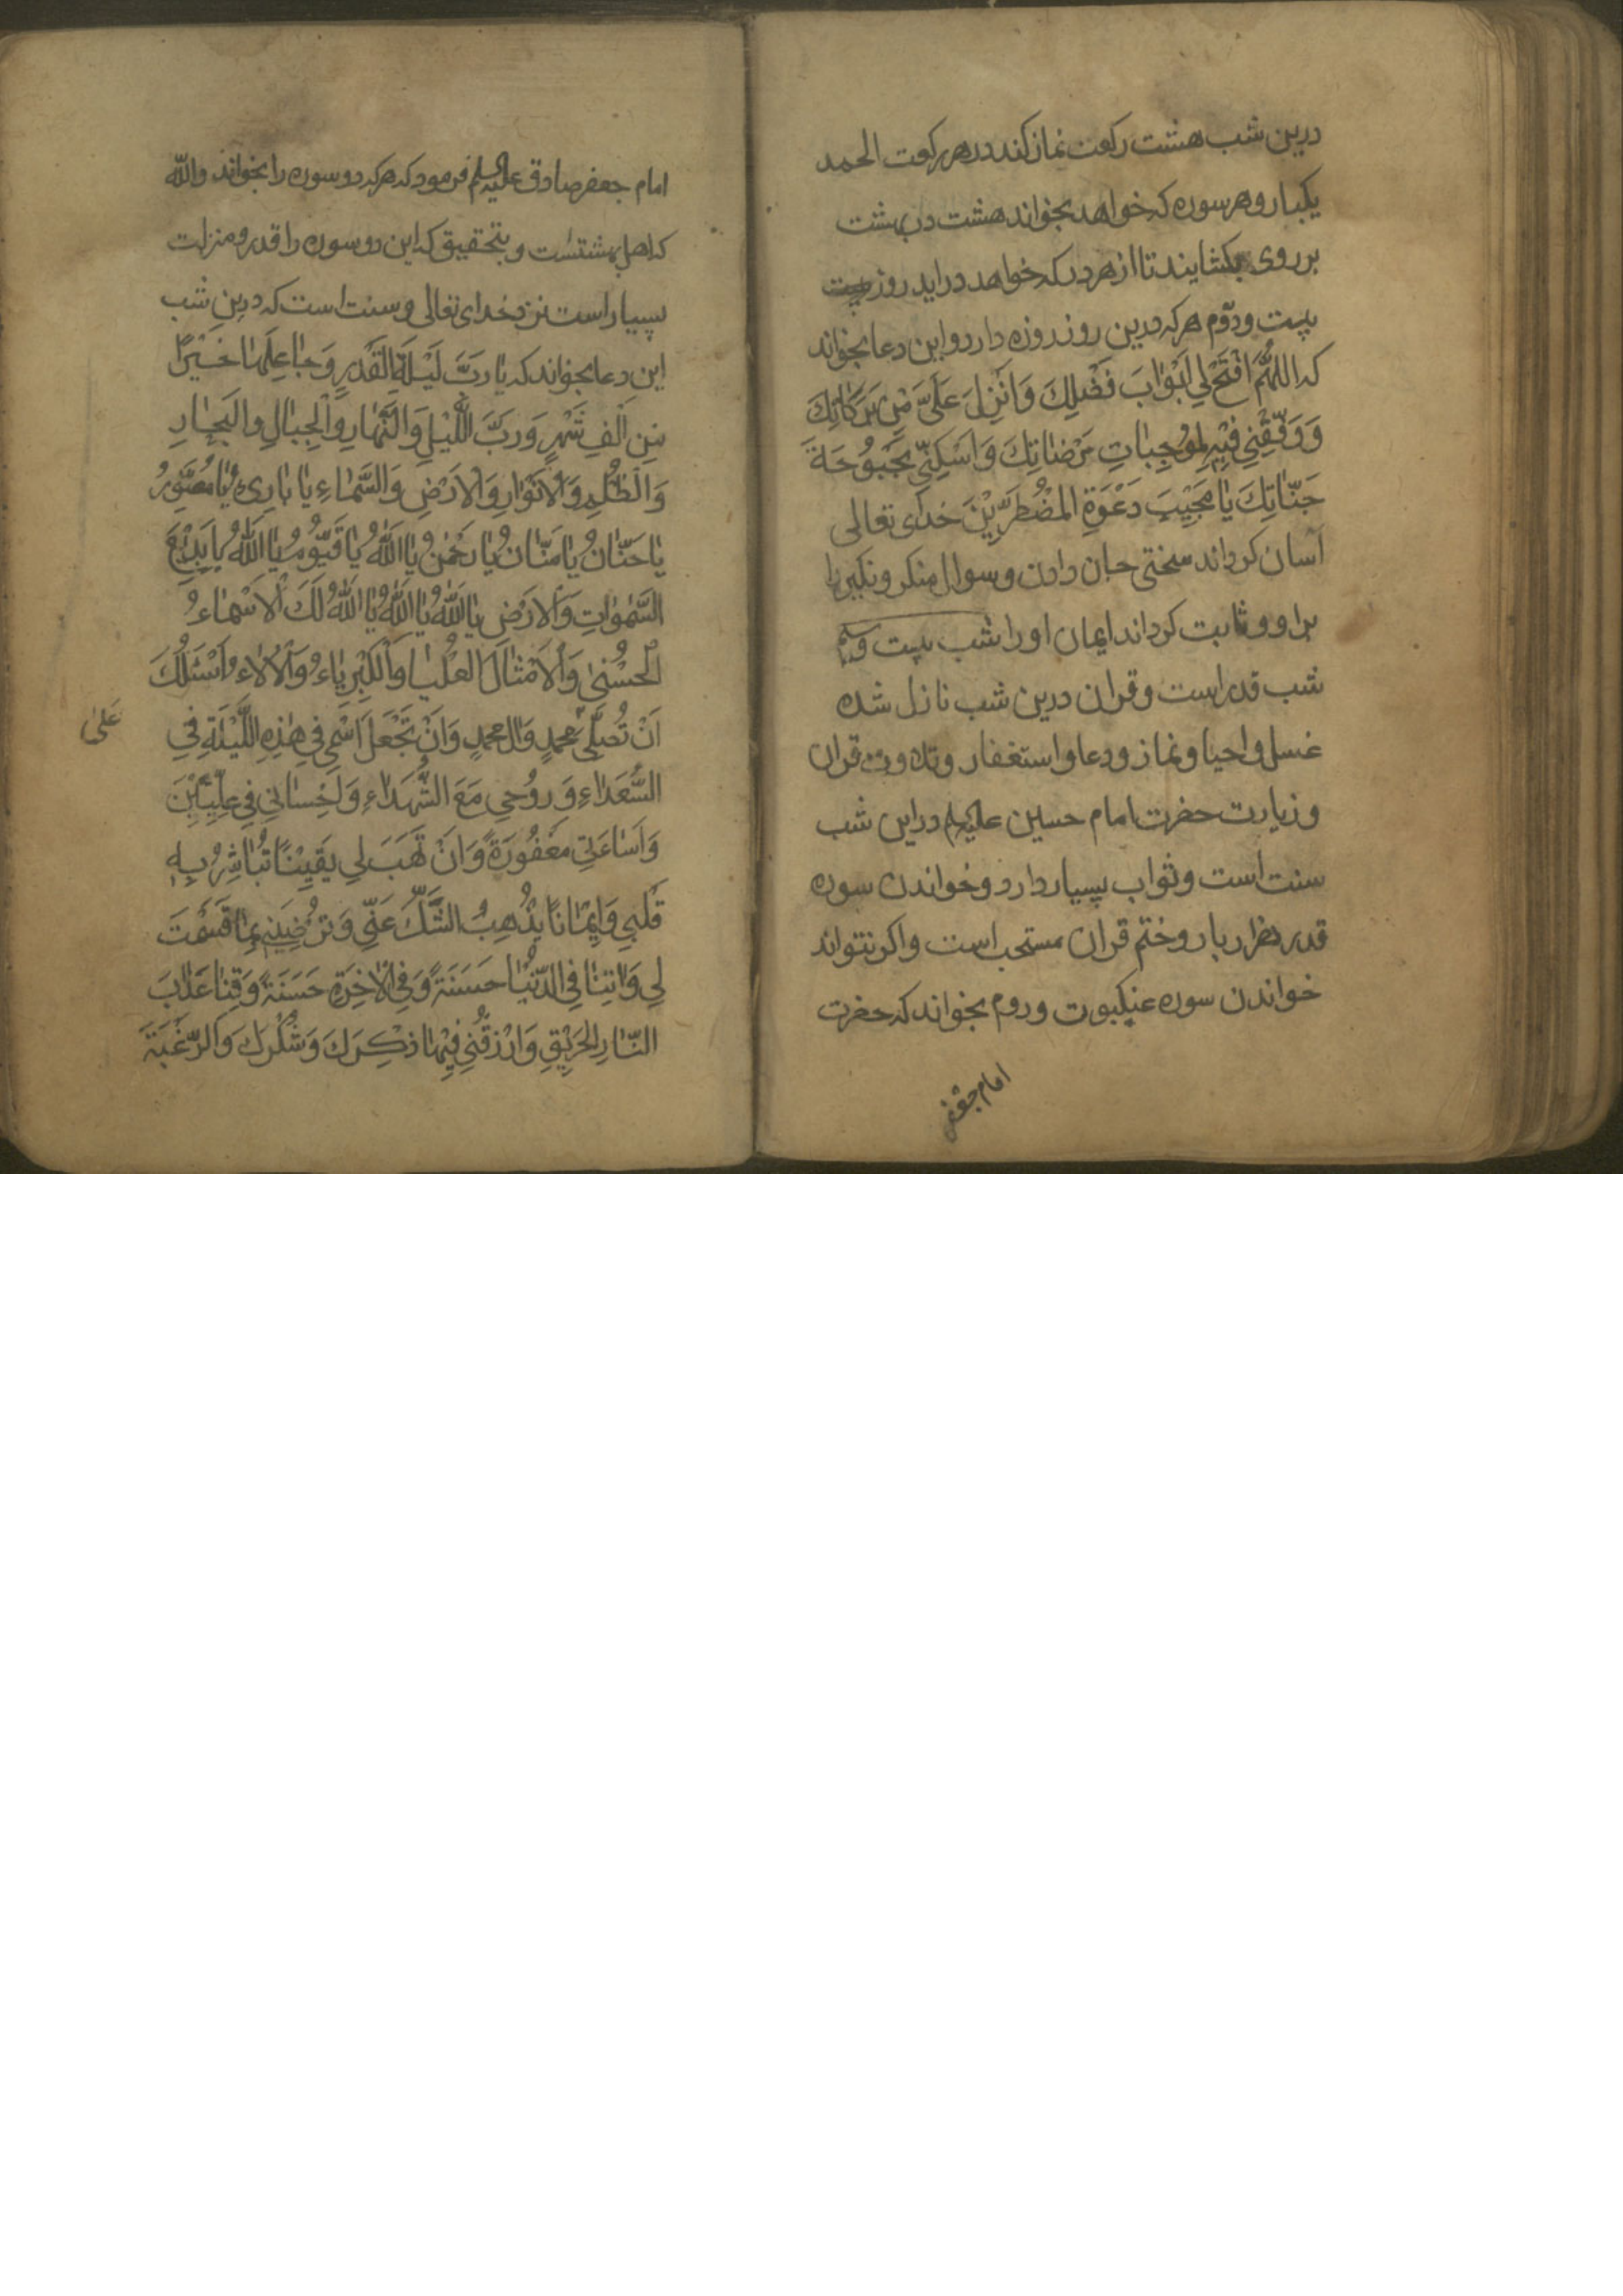 درین شب هشت رکعت نماز کند در هر رکعت الحمد
یکبار و هر سوره که خواهد بخواند هشت در بهشت
بر روی بکشایند تا از هر در که خواهد در اید روز
بیست ودوّم هر که درین روز روزه دارد و این دعا بخواند
که اللهُمَّ افْتَحْ لِي اَبْوٰابَ فَضْلِكَ وَاَنْزِلَ عَلَيَّ مِنْ بَرَكٰاتِكَ
وَ وَفِّقْنِي فِيْهِ لِمُوْجِبٰاتِ مَرْضٰاتِكَ وَاَسْكِنِّي بُحْبُوْحَةَ
جَنّٰاتِكَ يٰا مُجِيْبَ دَعْوَةِ الْمُضْطَرِّيْنَ خدای تعالی
آسان کرداند سختی جان دادن و سوال منکر و نکیر را
براو و ثابت کرداند ایمان او را شب بیست وسیم
شب قدر است و قران درین شب نازل شده
غسل و احیا و نماز و دعا و استغفار و تلاوت قران
و زیارت حضرت امام حسین علیه‌السلم در این شب
سنت است و ثواب بسیار دارد و خواندن سوره
قدر هزار بار و ختم قران مستحب است و اکر نتواند
خواندن سوره عنکبوت و روم بخواند که حضرت
امام جعفر
امام جعفر صادق علیه السلم فرمود که هر که دو سوره را بخواند والله
که اهل بهشتست و بتحقیق که این دو سوره را قدر و منزلت
بسیار است نزد خدای تعالی و سنت است که درین شب
این دعا بخواند که يٰا رَبَّ لَيْلَةِ الْقَدْرِ وَجٰاعِلَهٰا خَيْرًا
مِنْ اَلْفِ شَهْرٍ وَرَبَّ اللَّيْلِ وَالنَّهٰارِ وَالْجِبٰالِ وَالْبِحٰارِ
وَالْظُلَمِ وَالْاَنْوٰارِ وَالْاَرْضِ وَالسَّمٰاءِ يٰا بٰارِئُ يٰا مُصَوِّرُ
يٰا حَنّٰانُ يٰا مَنّٰانُ يٰا رَحْمٰنُ يٰا اَللّٰهُ يٰا قَيُّوْمُ يٰا اَللّٰهُ يٰا بَدِيْعَ
السَّمٰوٰاتِ وَالْاَرْضِ يٰا اَللّٰهُ يٰا اَللّٰهُ يٰا اَللّٰهُ لَكَ الْاَسْمٰاءُ
الْحُسْنٰى وَالْاَمْثٰالَ الْعُلْيٰا وَالْكِبْرِيٰاءُ وَالْاٰلٰاءُ اَسْئَلُكَ
اَنْ تُصَلِّيَ محمدٍ وَال محمدٍ وَاَنْ تَجْعَلَ اسْمِي فِي هٰذِهِ اللَّيْلَةِ فِي
عَلىٰ
السُّعَدٰاءِ وَرُوْحِي مَعَ الشُّهَدٰاءِ وَاِحْسٰانِي فِي عِلِّيِّيْنَ
وَاَسٰاءَتِي مَغْفُوْرَةً وَاَنْ تَهَبَ لِي يَقِيْنًا تُبٰاشِرُ بِهِ
قَلْبِي وَاِيْمٰانًا يُذْهِبُ الشَّكَّ عَنِّي وَتُرْضِيَنِي بِمٰا قَسَمْتَ
لِي وَاٰتِنٰا فِي الدُّنْيٰا حَسَنَةً وَفِي الْاٰخِرَةِ حَسَنَةً وَقِنٰا عَذٰابَ
النّٰارِ الْحَرِيْقِ وَارْزُقْنِي فِيْهٰا ذِكْرَكَ وَشُكْرَكَ وَالرَّغْبَةَ